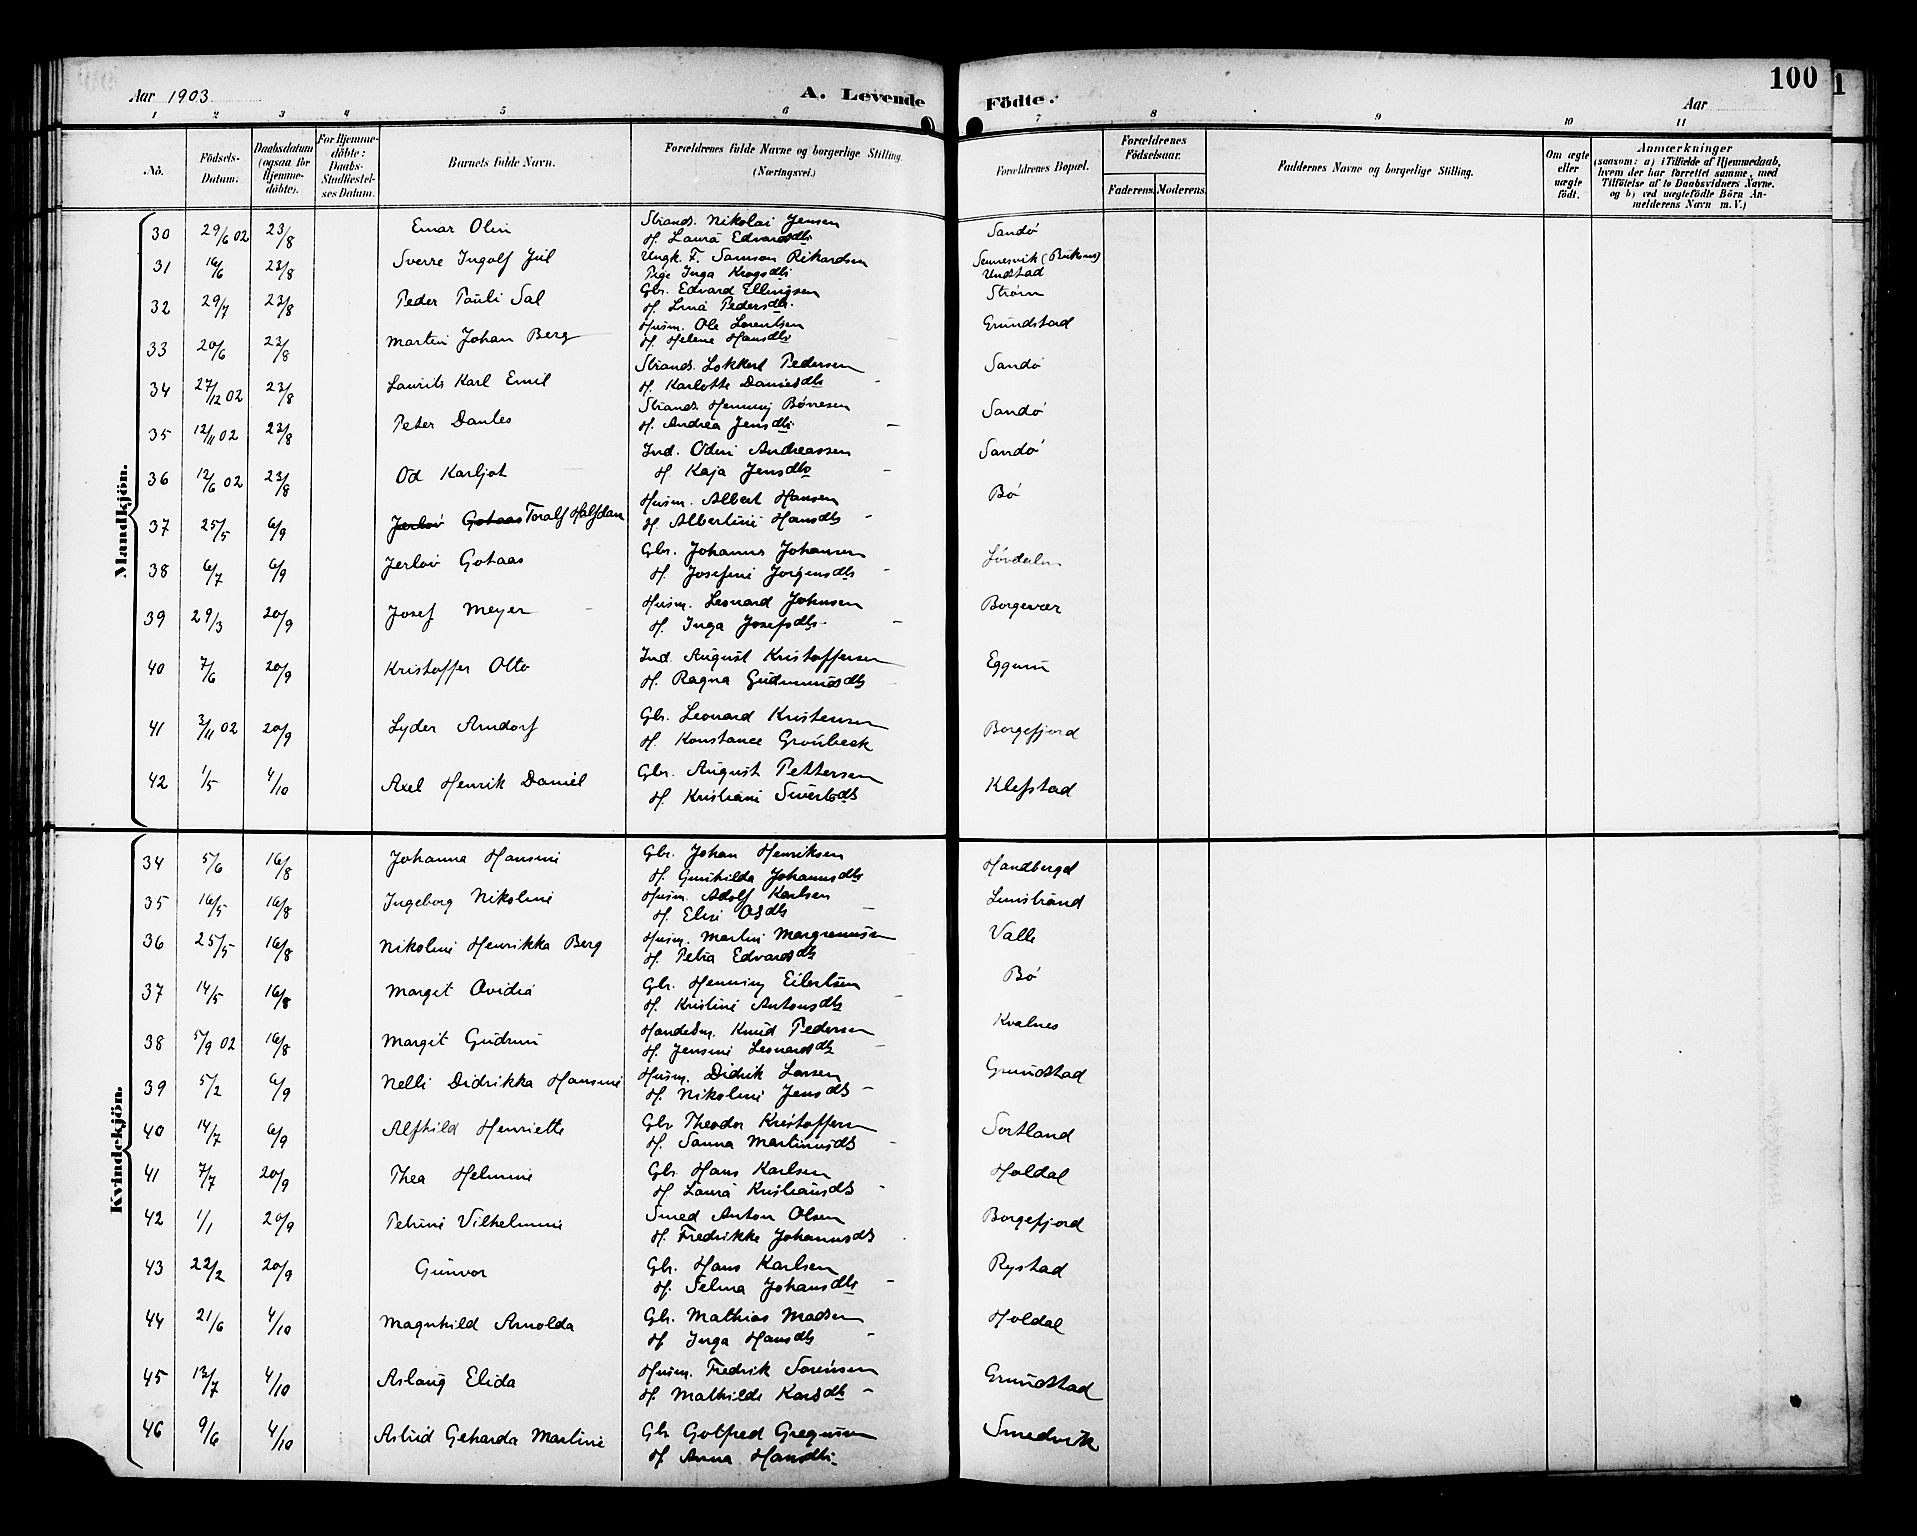 Aar 1903
A. Levende Födte.
Aar
100
1 2 3 4 5 6 7 8 9 10 11
No. Födsels-Datum. Daabsdatum (ogsaa for Hjemme-döbte). For Hjemme-döbte: Daabs-Stadfæstel-ses Datum. Barnets fulde Navn. Forældrenes fulde Navne og borgerlige Stilling (Næringsvei.) Forældrenes Bopæl. Forældrenes Födselsaar. Faderens. Moderens. Faddernes Navne og borgerlige Stilling. Om ægte eller uægte födt. Anmærkninger (saasom: a) i Tilfælde af Hjemmedaab, hvem der har forrettet samme, med Tilföielse af to Daabsvidners Navne, og b) ved uægtefödte Börn An-melderens Navn m. V.)
Mandkjön.
30 29/6 02 23/8 Einar Olin Strands. Nikolai Jensen Sandø
H. Laura Edvardsdtr
31 16/6 23/8 Sverre Ingolf Jul Ungk. F. Samson Rikardsen Sennesvik
Pige Inga Krogsdtr Unstad
32 29/7 23/8 Peder Pauli Sal Gbr. Edvard Ellingsen Strøm
H. Lina Pedersdtr.
33 20/6 23/8 Martin Johan Berg Husm. Ole Lorentsen Grundstad
H. Helene Hansdtr
34 27/12 02 23/8 Laurits Karl Emil Strands. Lokkert Pedersen Sandø
H. Karlotte Danielsdtr
35 12/11 02 23/8 Peter Dantes Strands. Henning Børresen Sandø
H. Andrea Jensdtr
36 12/6 02 23/8 Od Karljot Ind. Odin Andreassen Sandø
H. Kaja Jensdtr
37 25/5 6/9 Jerlov Gotaas Toralf Halfdan Husm. Albert Hansen Bø
H. Albertine Hansdtr
38 6/7 6/9 Jerlov Gotaas Gbr. Johannes Johansen Løvdalen
H. Josefine Jørgensdtr
39 29/3 20/9 Josef Meyer Husm. Leonard Johnsen Borgevær
H. Inga Josefsdtr
40 7/6 20/9 Kristoffer Otto Ind. August Kristoffersen Eggum
H. Ragna Gudmundsdtr
41 3/11 02 20/9 Lyder Arndorf Gbr. Leonard Kristensen Borgefjord
H. Konstance Grønbeck
42 1/5 4/10 Axel Henrik Daniel Gbr. August Pettersen Klefstad
H. Kristiane
Kvindekjön.
34 5/6 16/8 Johanna Hansine Gbr. Johan Henriksen Handberget
H. Gunhilda Johannsdtr
35 16/5 16/8 Ingeborg Nikoline Husm. Adolf Karlsen Limstrand
H. Elin
36 25/5 16/8 Nikoline Henrikka Berg Husm. Martin Valle
H. Petra Edvardsdtr
37 14/5 16/8 Margit Ovidia Gbr. Henning Eilertsen Bø
H. Kristine Antonsdtr
38 5/9 02 16/8 Margit Gudrun Handelsm. Knud Pedersen Kvalnes
H. Jensine Leonardsdtr
39 5/2 6/9 Nelli Didrikka Hansine Husm. Didrik Larsen Grundstad
H. Nikoline Jensdtr
40 14/7 6/9 Alfhild Henriette Gbr Theodor Kristoffersen Sortland
H. Sanna Martinusdtr
41 7/7 20/9 Thea Helmine Gbr. Hans Karlsen Holdal
H. Laura Kristiansdtr
42 1/1 20/9 Petrine Vilhelmine Smed Anton Olsen Borgefjord
H. Fredrikke Johannsdtr
43 22/2 20/9 Gunvor Gbr. Hans Karlsen Rystad
H. Selma Johansdtr
44 21/6 4/10 Magnhild Arnolda Gbr. Mathias Madsen Holdal
H. Inga Hansdtr
45 13/7 4/10 Aslaug Elida Husm. Fredrik Sørensen Grundstad
H. Mathilde Karlsdtr
46 9/6 4/10 Astrid Geharda Martine Gbr Gotfred Gregusen Smedvik
H. Anna Hansdtr